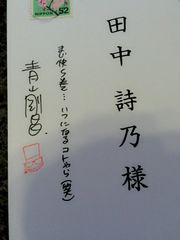 52
NIPPON
田中 詩乃 様
まじ快5巻… いつになるコトやら(笑)
青山剛昌